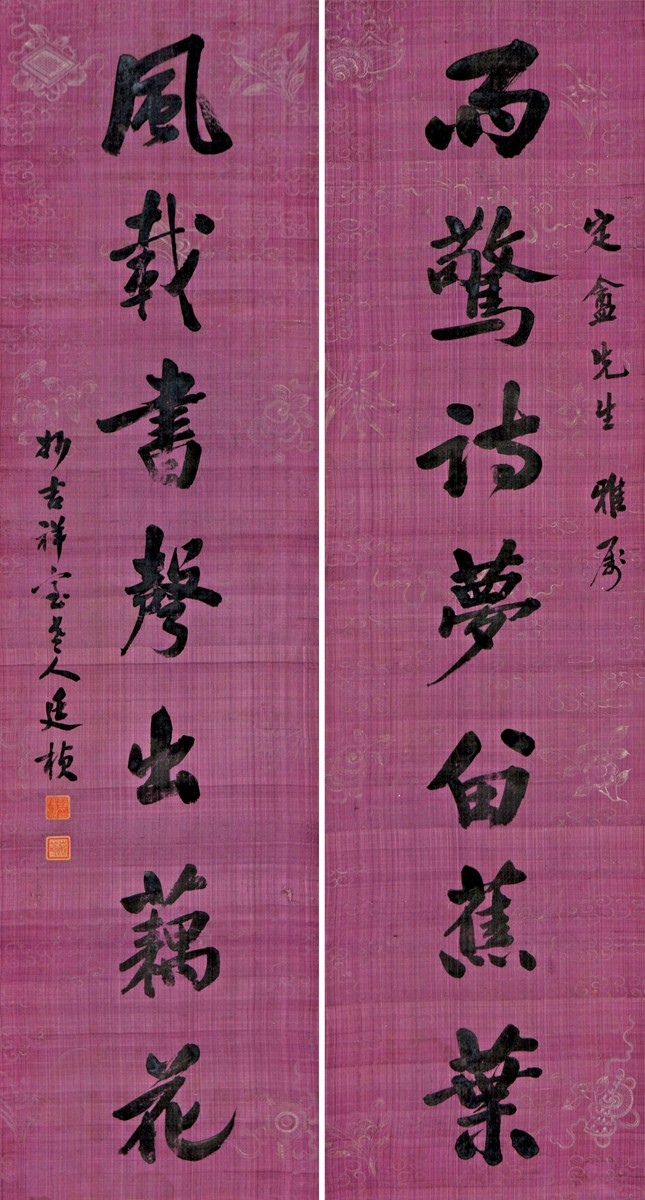 定盦先生 雅属
雨驚詩夢留蕉葉
風載書聲出藕花
妙吉祥室老人廷楨